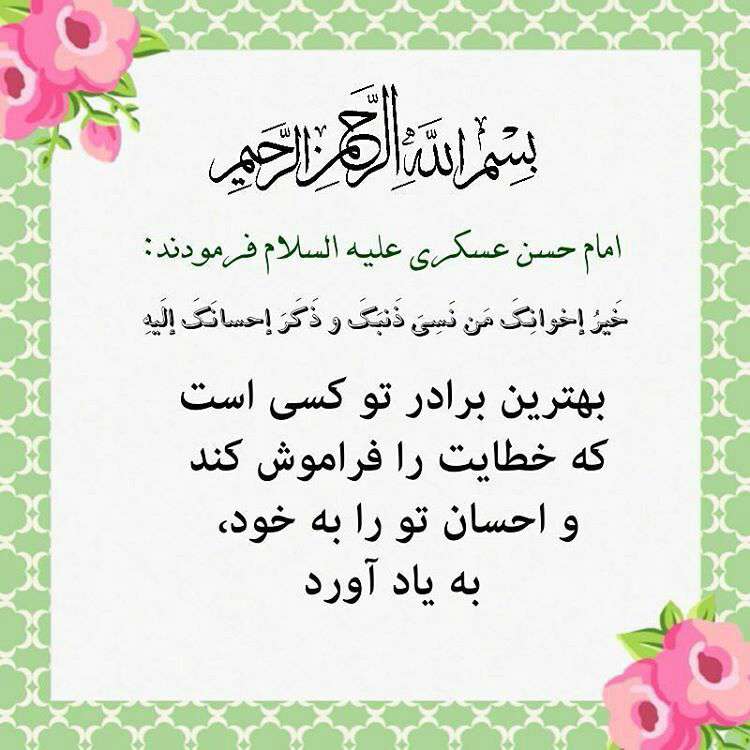 بِسْمِ اللَّهِ الرَّحْمَنِ الرَّحِيمِ
امام حسن عسکری علیه السلام فرمودند:
خَیرُ إخوانِکَ مَن نَسِیَ ذَنبَکَ و ذَکَرَ إحسانَکَ إلَیهِ
بهترین برادر تو کسی است
که خطایت را فراموش کند
و احسان تو را به خود،
به یاد آورد